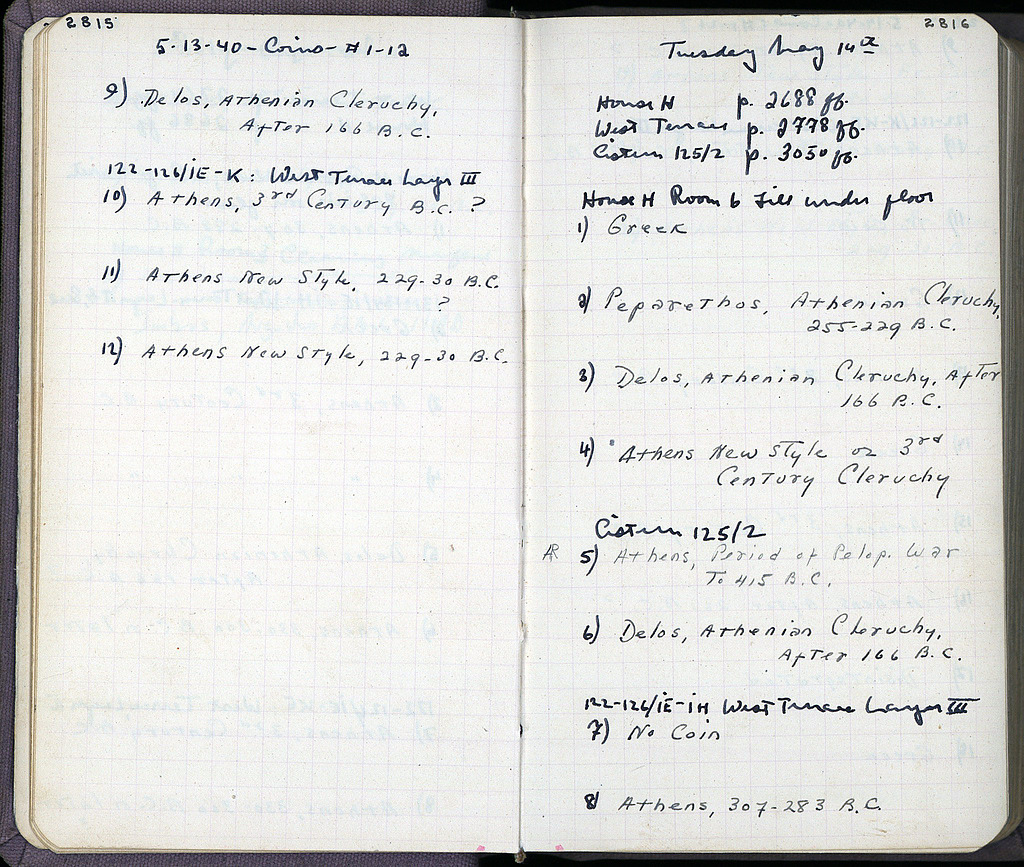 2815
5-13-40-Coins-#1-12
9) Delos, Athenian Cleruchy,
After 166 B.C.
122-126/ΙΕ-Κ: West Terrace Layer III
10) Athens, 3rd Century B.C. ?
11) Athens New Style, 229-30 B.C.
?
12) Athens New Style, 229-30 B.C.
2816
Tuesday May 14th
House H p. 2688 ff.
West Terrace p. 2778 ff.
Cistern 125/2 p. 3050 ff.
House H Room 6 Fill under floor
1) Greek
2) Peparethos, Athenian Cleruchy,
255-229 B.C.
3) Delos, Athenian Cleruchy, After
166 B.C.
4) Athens New Style or 3rd
Century Cleruchy
Cistern 125/2
AR 5) Athens, Period of Pelop. War
To 415 B.C.
6) Delos, Athenian Cleruchy,
After 166 B.C.
122-126/ΙΕ-ΙΗ West Terrace Layer III
7) No Coin
8) Athens, 307-283 B.C.